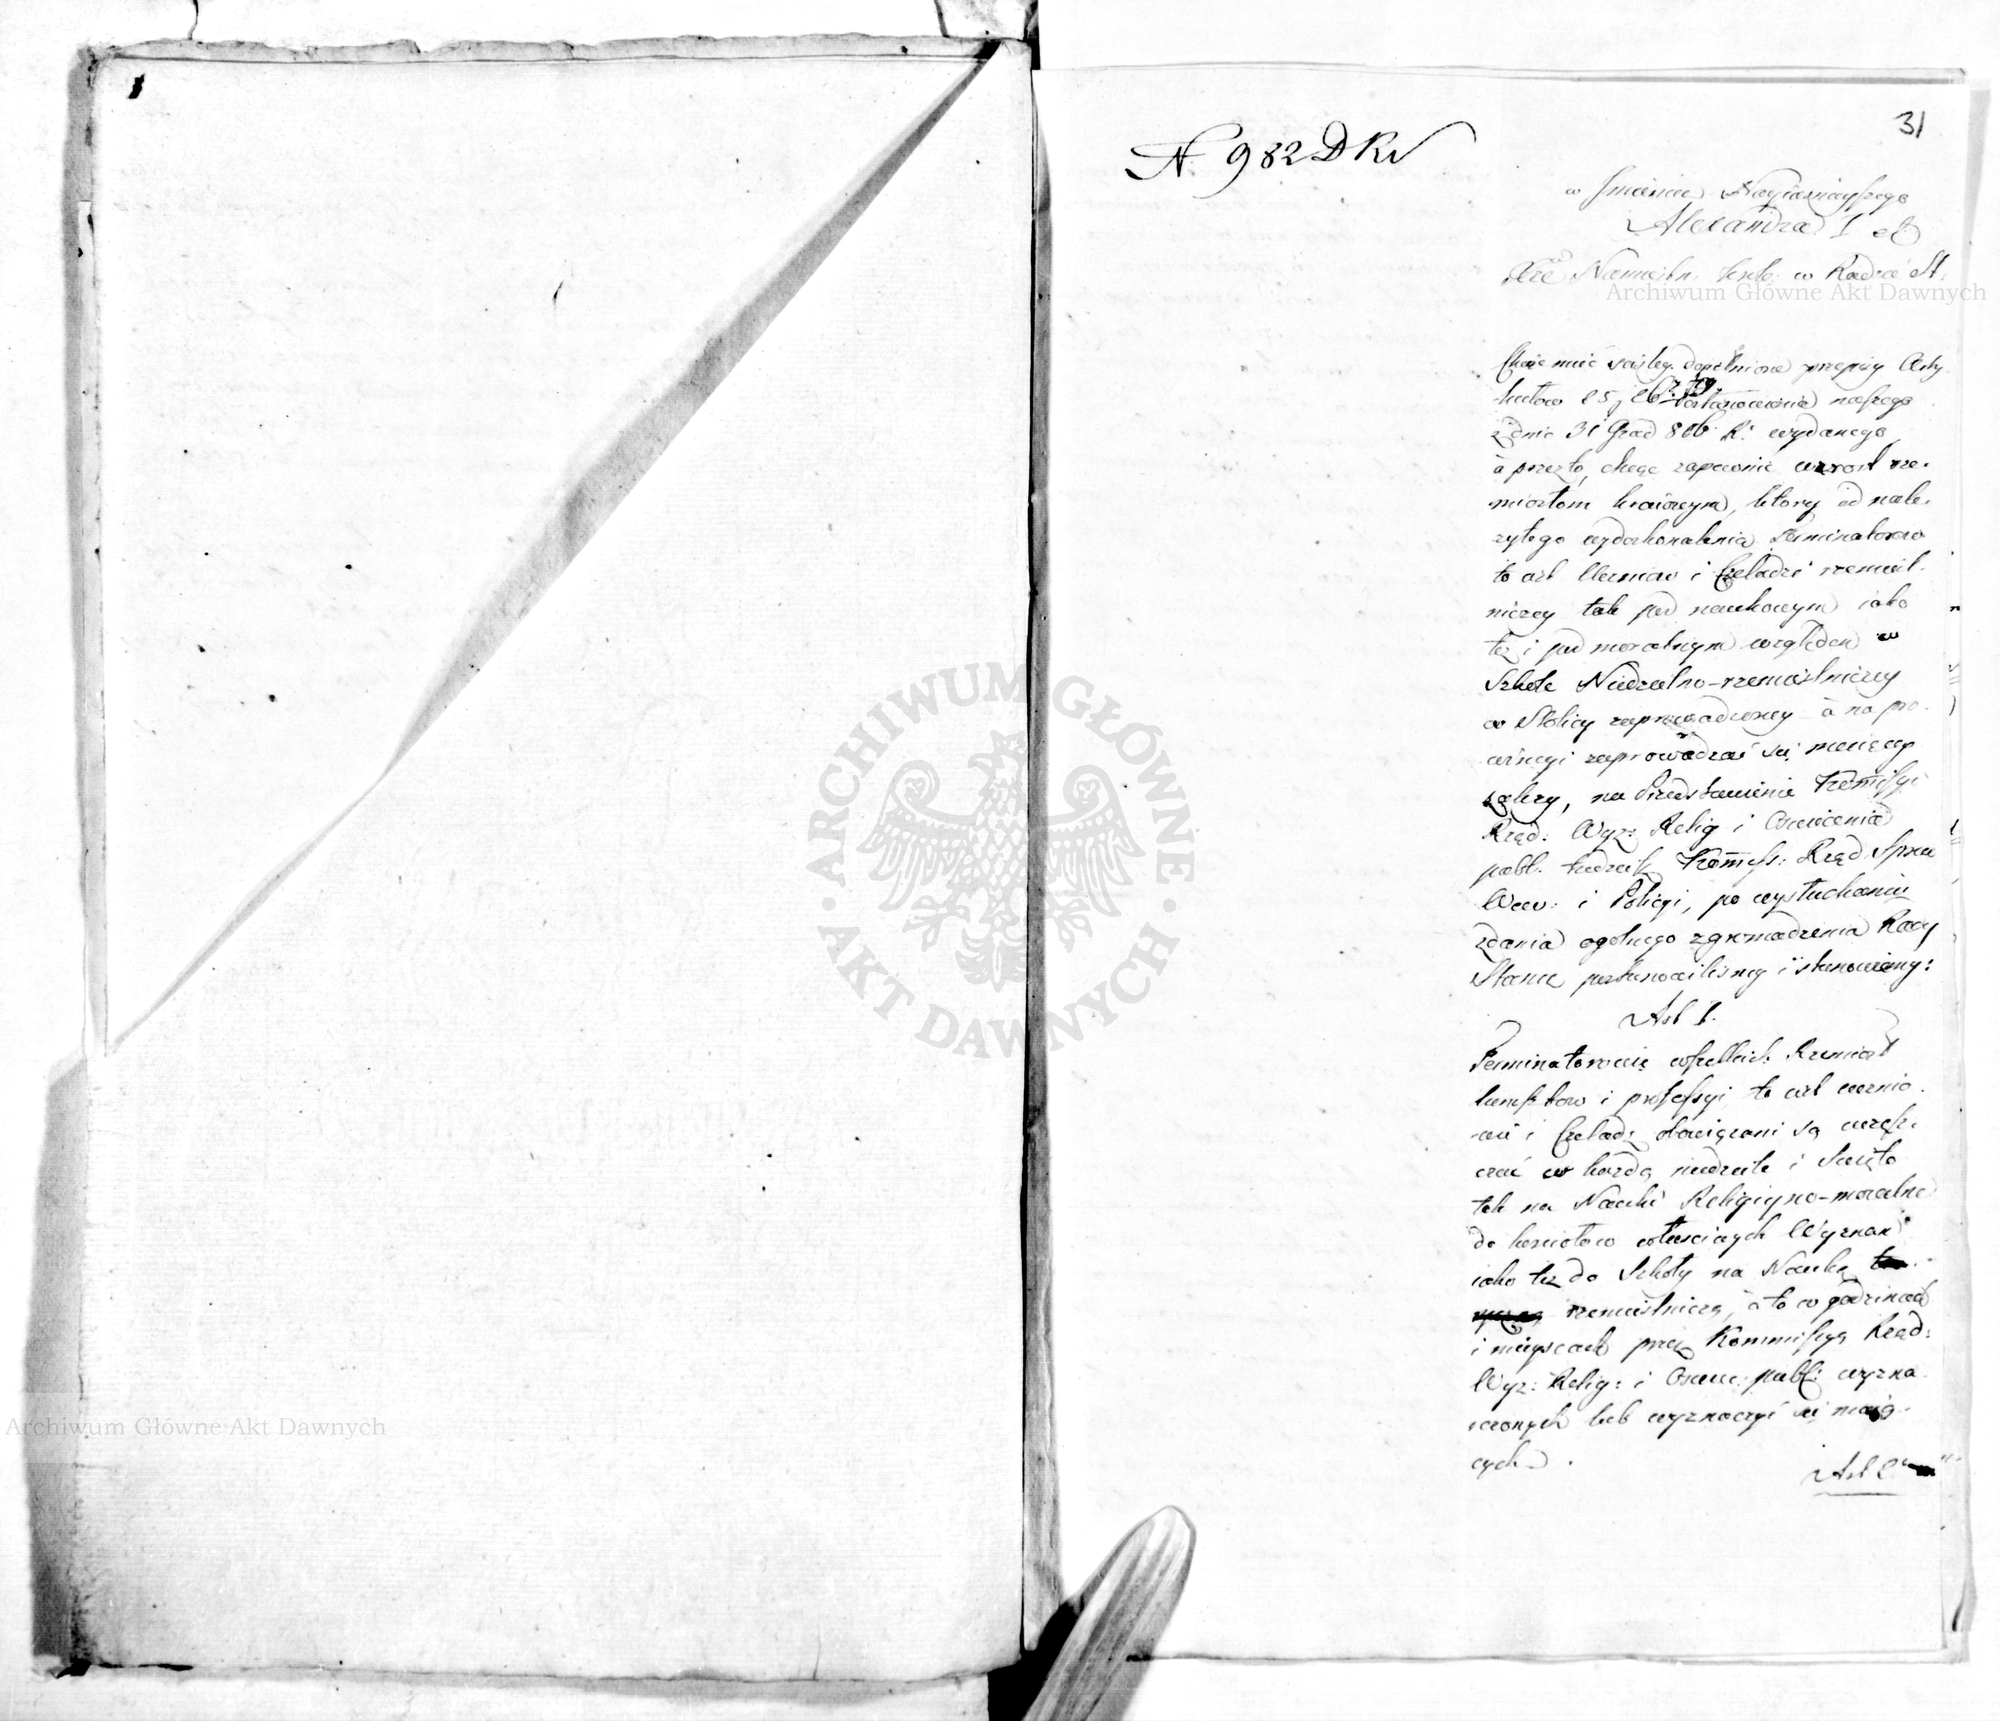 31
N. 982 DRN
w Jmieniu Nayiaśnieyszego
Alexandra I etc
Xże Namiestn: Król: w Radzie St.
Archiwum Główne Akt Dawnych
Chcąc mieć ściśley dopełnione przepisy Arty
kułów 25, 26 Postanowienia naszego
z dnia 31 Grud 816 R: wydanego
a przez to, chcąc zapewnić wzrost rze-
miosłom kraiowym, który od nale-
żytego wydoskonalenia Terminatorów
to iest Uczniów i Czeladzi rzemieśl-
niczey tak pod naukowym iako
też i pod moralnym względem w
Szkole Niedzielno-rzemieślniczey
w Stolicy zaprowadzoney a na pro-
wincyi zaprowadzać się maiącey
zależy, na Przedstawienie Kommissyi
Rząd: Wyz: Relig i Oświecenia
publ. tudzież Kommiss: Rząd Spraw
Wew: i Policyi, po wysłuchaniu
zdania ogolnego zgromadzenia Rady
Stanu postanowiliśmy i stanowiemy:
Art 1.
Terminatorowie wszelkich Rzemiosł
kunsztow i professyi to iest ucznio-
wie i Czeladź obowiązani są uczęsz-
czać w każdą niedzielę i Święto
tak na Nauki Religiyno-moralne
do kościołow właściwych Wyznań
iako też do Szkoły na Naukę
rzemieślniczą, a to w godzinach
i mieyscach przez Kommissyą Rząd:
Wyz: Relig: i Oświe: publ: wyzna-
czonych lub wyznaczyć się maią-
cych.
Art 2
ARCHIWUM GŁÓWNE
AKT DAWNYCH
Archiwum Główne Akt Dawnych